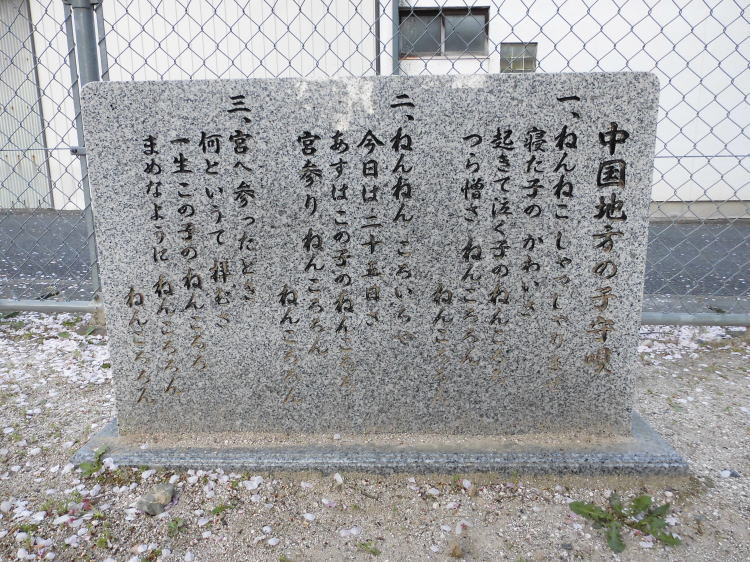 中国地方の子守唄
一、ねんねこ しゃっしゃりませ
寝た子の かわいさ
起きて泣く子の ねんころろ
つら憎さ ねんころろん
ねんころろん
二、ねんねん ころいちや
今日は二十五日さ
あすはこの子の ねんころろ
宮参り ねんころろん
ねんころろん
三、宮へ参ったとき
何というて拝むさ
一生この子の ねんころろ
まめなように ねんころろん
ねんころろん